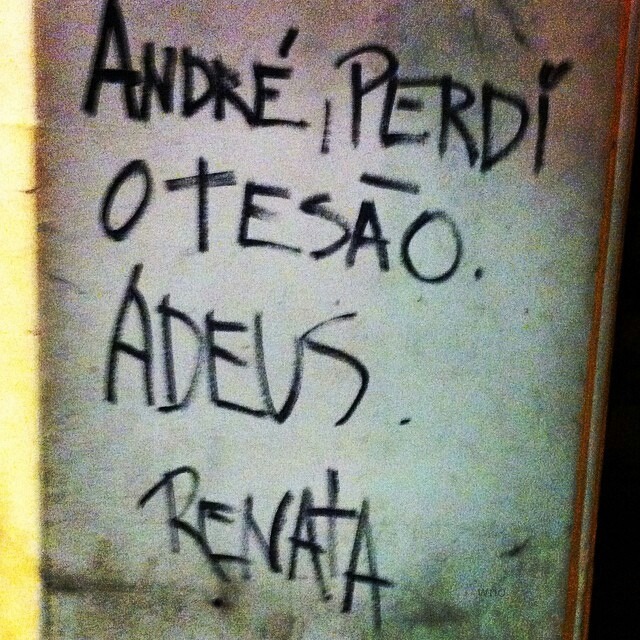 ANDRÉ, PERDI
O TESÃO.
ADEUS.
RENATA